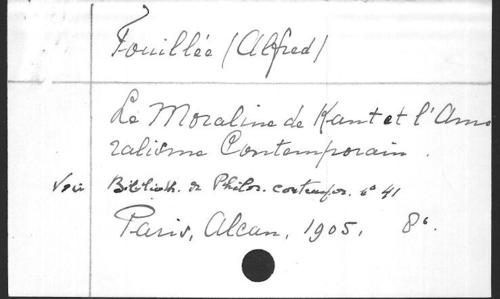 Fouillée (Alfred)
Le Moralisme de Kant et l'Amo
ralisme Contemporain.
Voir Biblioth. de Philos. contempor. nº 41
Paris, Alcan, 1905. 8º.